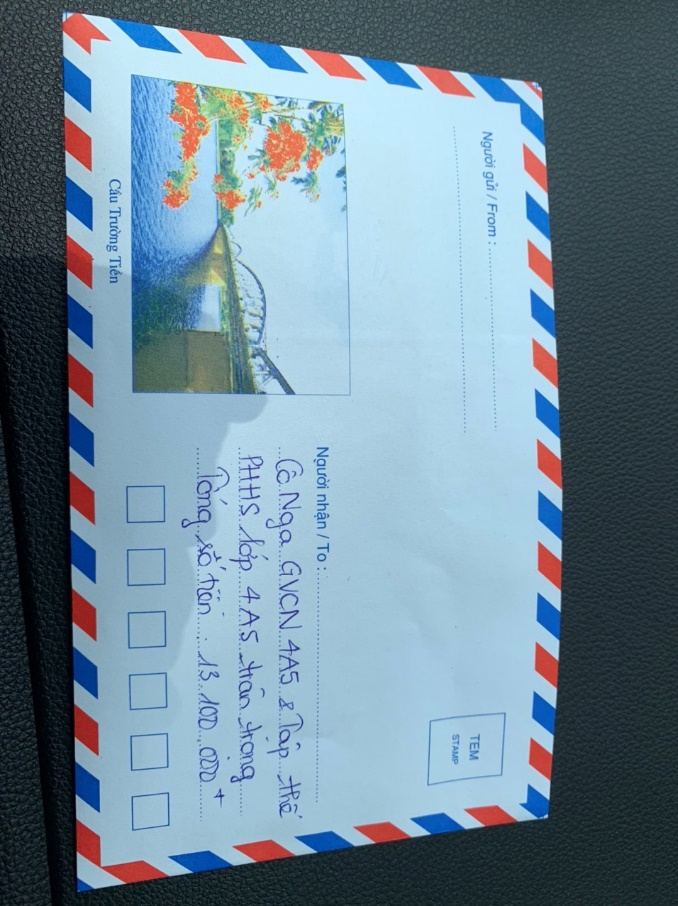 Người gửi / From :
TEM
STAMP
Cầu Trường Tiền
Người nhận / To :
Cô Nga GVCN 4A5 & Tập thể
PHHS lớp 4A5 trân trọng
Tổng số tiền : 13.100.000 +